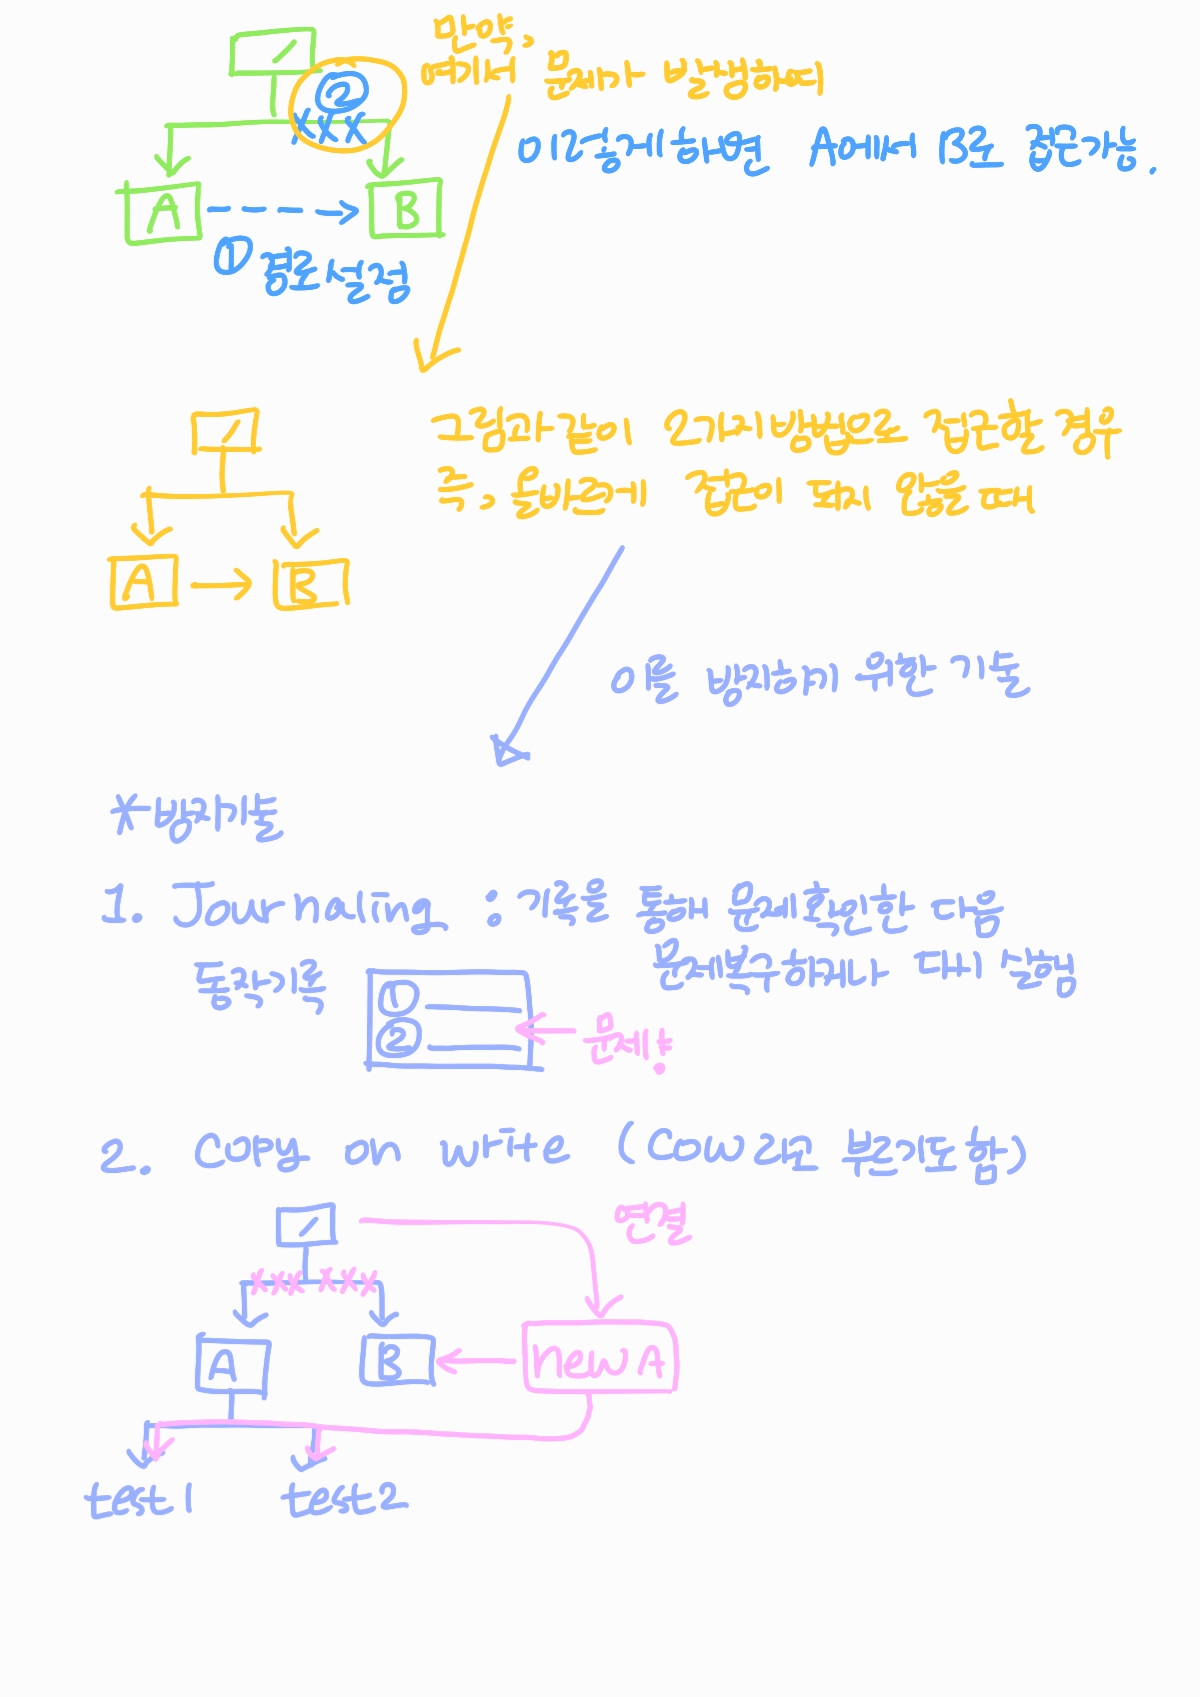 /
만약,
여기서 문제가 발생하며
②
XXX
이렇게하면 A에서 B로 접근가능.
A B
① 경로설정
/
그림과같이 2가지방법으로 접근할 경우
즉, 올바르게 접근이 되지 않을 때
A B
이를 방지하기 위한 기술
*방지기술
1. Journaling : 기록을 통해 문제확인한 다음
문제복구하거나 다시 실행
동작기록
①
② 문제!
2. Copy on write (COW라고 부르기도 함)
/ 연결
xxx xxx
A B new A
test1 test2